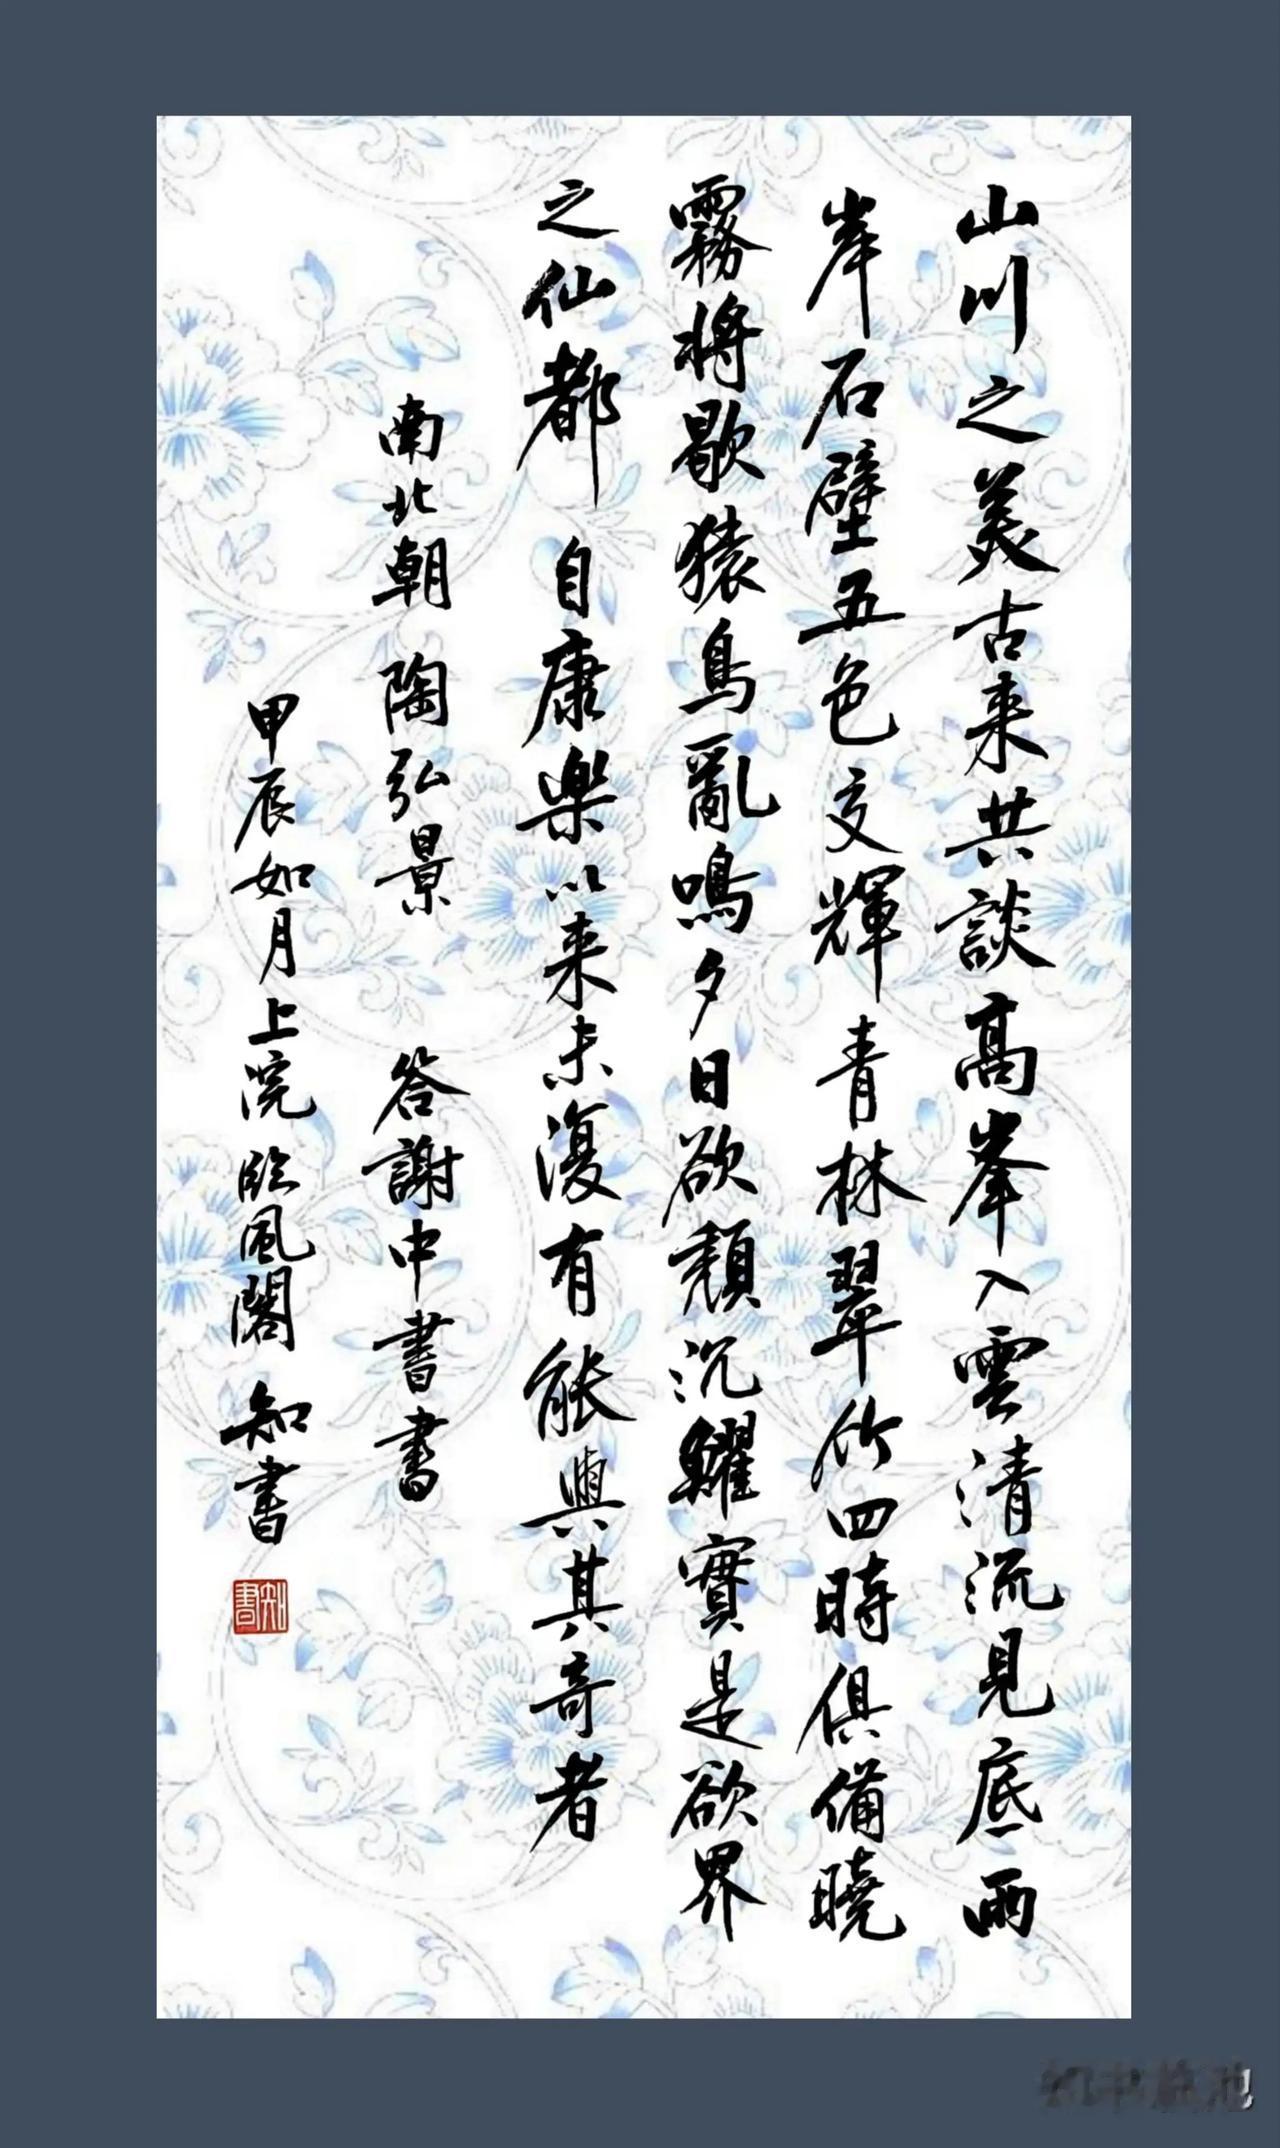 山川之美古来共談高峯入雲清流見底兩
岸石壁五色交輝青林翠竹四時俱備曉
霧將歇猿鳥亂鳴夕日欲頹沉鱗實是欲界
之仙都自康樂以来未復有能與其奇者
南北朝 陶弘景 答謝中書書
甲辰如月上浣臨風閣 知書
知書